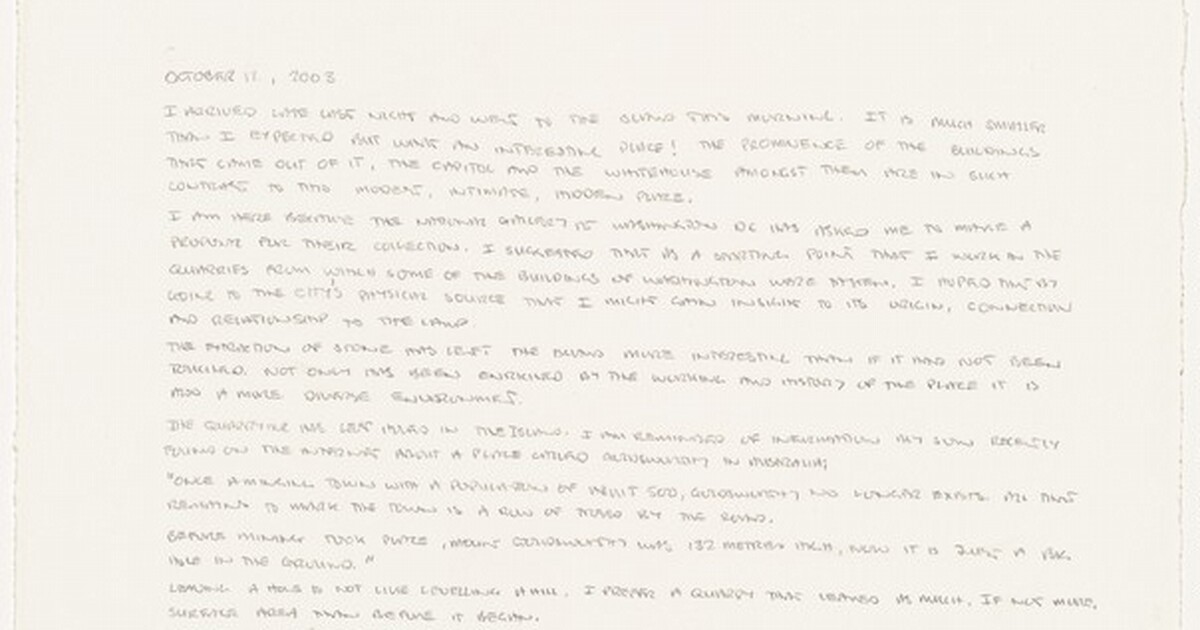 OCTOBER 11, 2003
I ARRIVED LATE LAST NIGHT AND WENT TO THE ISLAND THIS MORNING. IT IS MUCH SMALLER
THAN I EXPECTED BUT WHAT AN INTERESTING PLACE! THE PROMINENCE OF THE BUILDINGS
THAT CAME OUT OF IT, THE CAPITOL AND THE WHITEHOUSE AMONGST THEM ARE IN SUCH
CONTRAST TO THIS MODEST, INTIMATE, HIDDEN PLACE.
I AM HERE BECAUSE THE NATIONAL GALLERY OF WASHINGTON DC HAS ASKED ME TO MAKE A
PROPOSAL FOR THEIR COLLECTION. I SUGGESTED THAT AS A STARTING POINT THAT I WORK IN THE
QUARRIES FROM WHICH SOME OF THE BUILDINGS OF WASHINGTON WERE TAKEN. I HOPED THAT BY
GOING TO THE CITY'S PHYSICAL SOURCE THAT I MIGHT GAIN INSIGHT TO ITS ORIGIN, CONNECTION
AND RELATIONSHIP TO THE LAND.
THE EXTRACTION OF STONE HAS LEFT THE ISLAND MORE INTERESTING THAN IF IT HAD NOT BEEN
TOUCHED. NOT ONLY HAS BEEN ENRICHED BY THE WORKING AND HISTORY OF THE PLACE IT IS
ALSO A MORE DIVERSE ENVIRONMENT.
THE QUARRYING HAS LEFT HOLES IN THE ISLAND. I AM REMINDED OF INFORMATION MY SON RECENTLY
FOUND ON THE INTERNET ABOUT A PLACE CALLED GOLDSWORTHY IN AUSTRALIA;
"ONCE A MINING TOWN WITH A POPULATION OF ABOUT 500, GOLDSWORTHY NO LONGER EXISTS. ALL THAT
REMAINS TO MARK THE TOWN IS A ROW OF TREES BY THE ROAD.
BEFORE MINING TOOK PLACE, MOUNT GOLDSWORTHY WAS 132 METRES HIGH, NOW IT IS JUST A BIG
HOLE IN THE GROUND."
LEAVING A HOLE IS NOT LIKE LEVELLING A HILL. I PREFER A QUARRY THAT LEAVES AS MUCH, IF NOT MORE,
SURFACE AREA THAN BEFORE IT BEGAN.